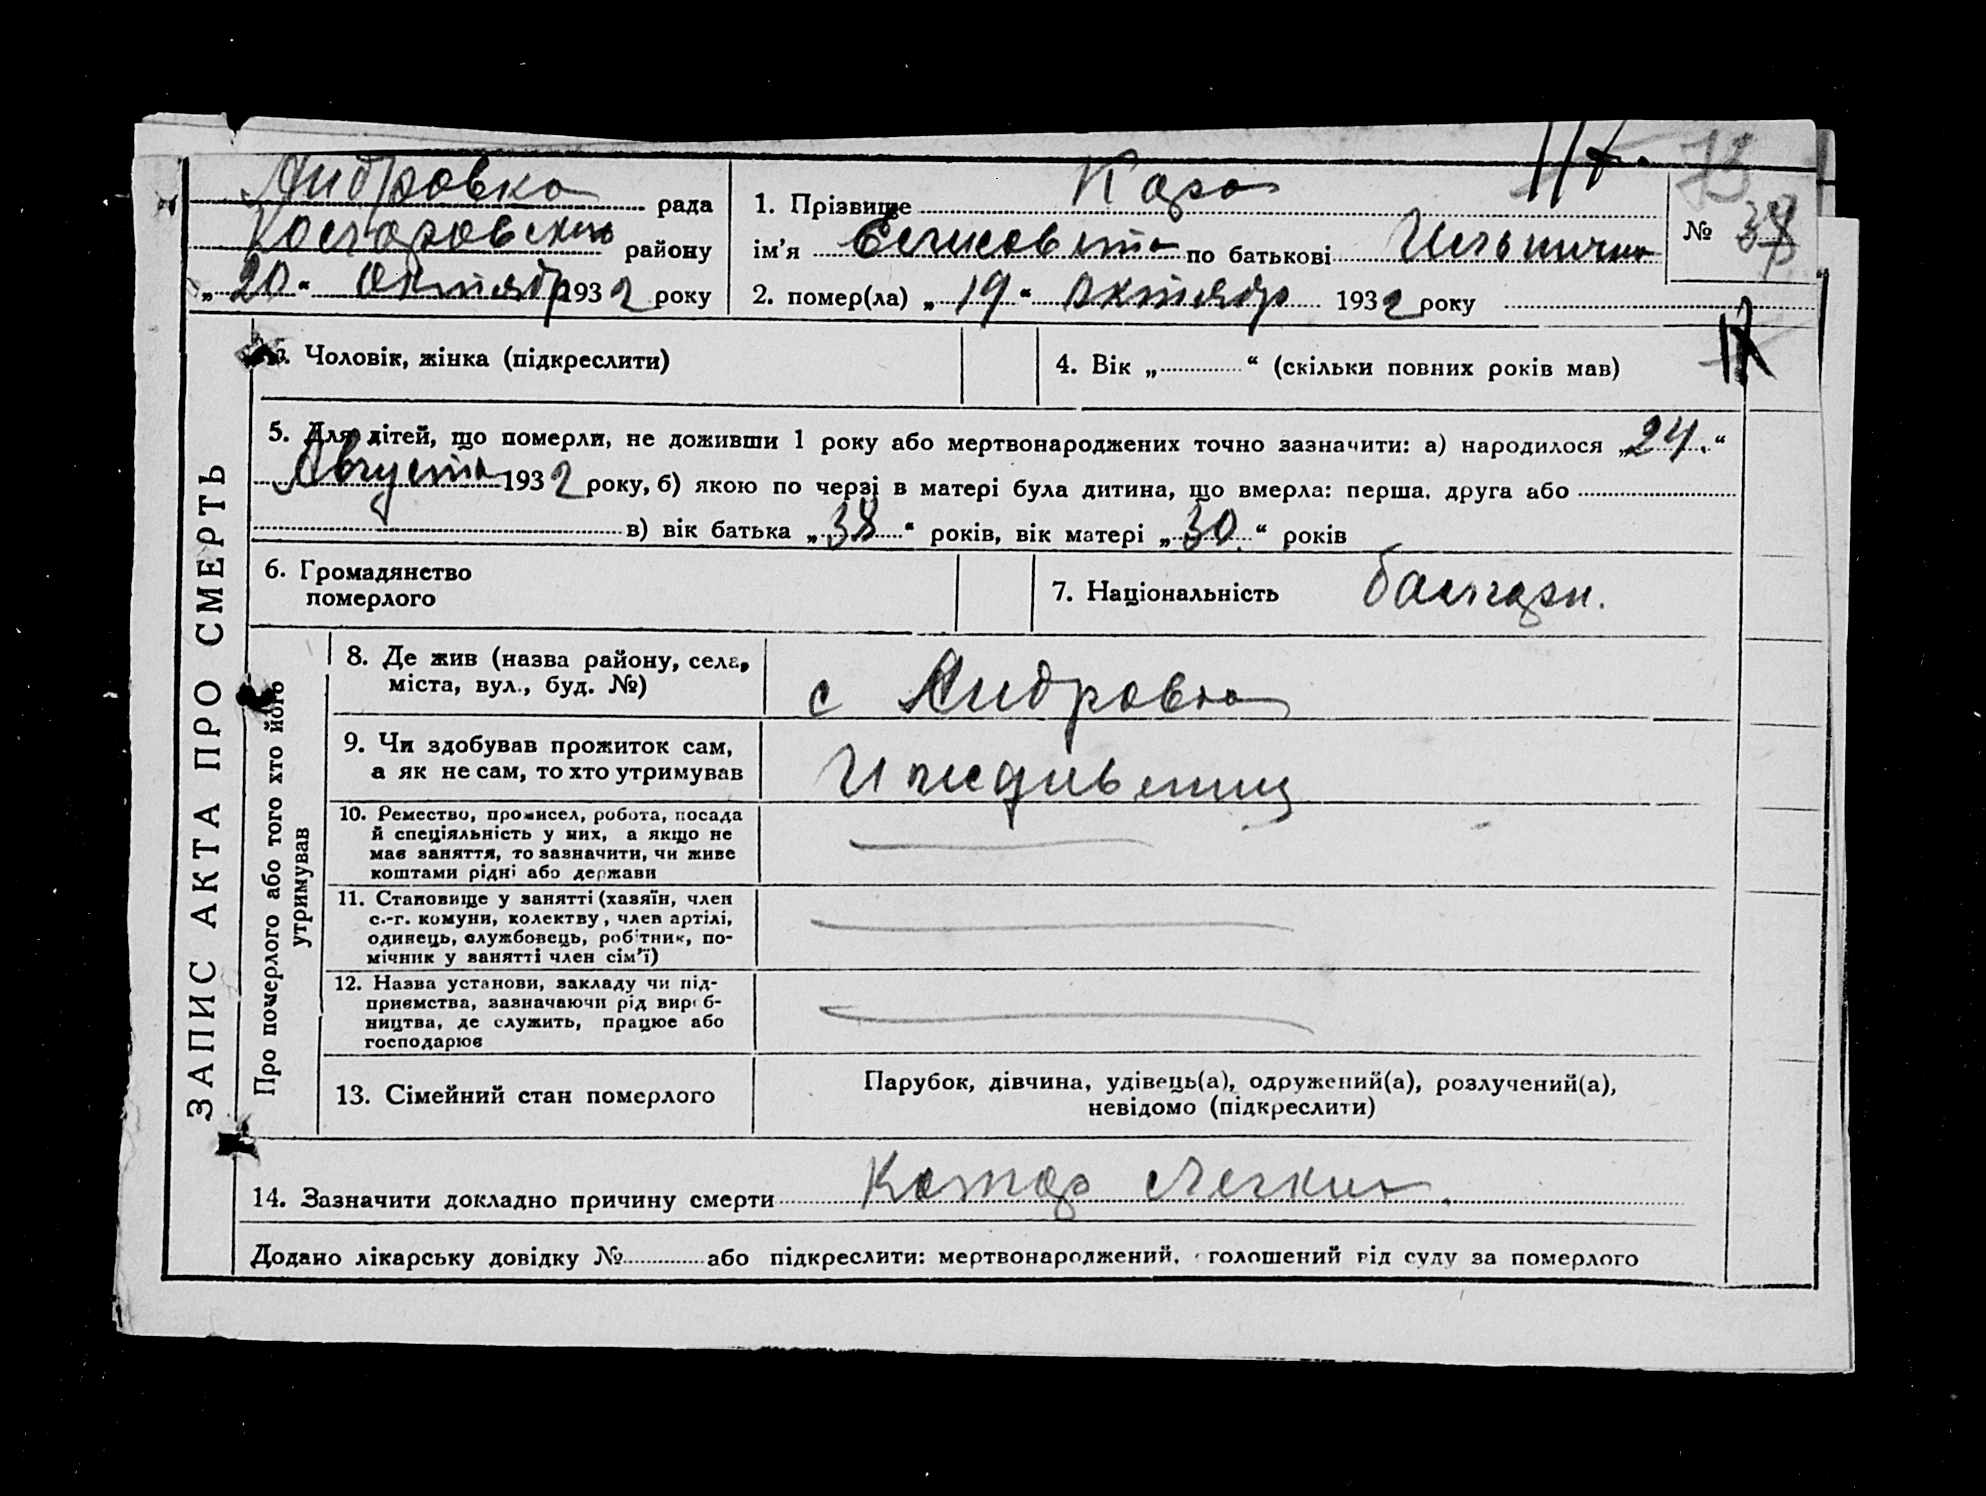 ЗАПИС АКТА ПРО СМЕРТЬ
Андровка рада
району
„20“ октября 1932 року
1. Прізвище Кара
ім’я Елисовета по батькові Ильинична
2. помер(ла) „19“ октября 1932 року
№ 38
3. Чоловік, жінка (підкреслити)
4. Вік „ “ (скільки повних років мав)
5. Для дітей, що померли, не доживши 1 року або мертвонароджених точно зазначити: а) народилося „24.“
Августа 1932 року, б) якою по черзі в матері була дитина, що вмерла: перша, друга або
в) вік батька „38“ років, вік матері „30.“ років
6. Громадянство
померлого
7. Національність болгарн.
Про померлого або того хто його
утримував
8. Де жив (назва району, села,
міста, вул., буд. №)
с Андровка
9. Чи здобував прожиток сам,
а як не сам, то хто утримував
Иждивенец
10. Ремество, промисел, робота, посада
й спеціяльність у них, а якщо не
має заняття, то зазначити, чи живе
коштами рідні або держави
11. Становище у занятті (хазяїн, член
с.-г. комуни, колектву, член артілі,
одинець, службовець, робітник, по-
мічник у занятті член сім’ї)
12. Назва установи, закладу чи під-
приємства, зазначаючи рід вироб-
ництва, де служить, працює або
господарює
13. Сімейний стан померлого
Парубок, дівчина, удівець(а), одружений(а), розлучений(а),
невідомо (підкреслити)
14. Зазначити докладно причину смерти Катар легких.
Додано лікарську довідку № або підкреслити: мертвонароджений, оголошений від суду за померлого